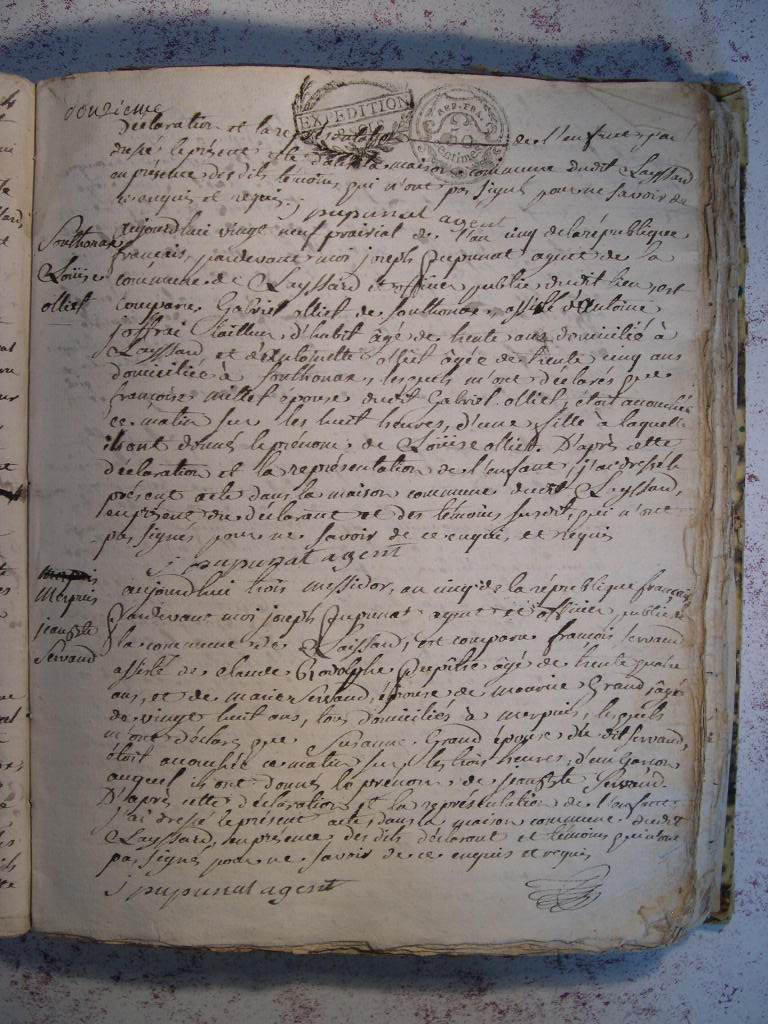 douzieme
EXPEDITION
REP. FRA.
50
centimes
declaration et la representation de l'enfant, j'ai
dressé le présent acte dans la maison commune dudit Layssard
en présence des dits témoins, qui n'ont pas signé pour ne savoir de
ce enquis et requis. j pupunat agent
Southonax
Loüise
olliet
aujourdhui vingt neuf prairial de l'an cinq de la république
français, pardevant moi joseph Pupunat agent de la
commune de Layssard et officier public dudit lieu, est
comparu Gabriel olliet de Southonax, assisté d'Antoine
joffrai tailleur d'habit âgé de trente ans domicilié à
Layssard, et d'antoinette olliet âgée de trente cinq ans
domiciliée à Southonax, lesquels m'ont déclarés que
françoise millet épouse dudit Gabriel olliet, étoit accouchée
ce matin sur les huit heures, d'une fille à laquelle
ils ont donné le prénom de Loüise olliet. D'après cette
déclaration et la représentation de l'enfant, j'ai dressé le
présent acte dans la maison commune dudit Layssard,
en présence du déclarant et des témoins susdit, qui n'ont
pas signés pour ne savoir de ce enquis et requis
j pupunat agent
merpuis
merpuis
jean Bte
Servand
aujourdhui trois messidor, an cinq de la république français
Pardevant moi joseph Pupunat agent et officier public de
la commune de Laissard, est comparu françois Servand
assisté de claude Rodolphe âgé de trente quatre
ans, et de marie Servand, épouse de mourice Grand, âgée
de vingt huit ans, tous domiciliés à merpuis, lesquels
m'ont déclarés que Susanne Grand épouse du dit Servand,
étoit accouchée ce matin sur les trois heures, d'un Garçon
auquel ils ont donné le prénom de jean Bte Servand.
D'après cette déclaration et la représentation de l'enfant
j'ai dressé le présent acte dans la maison commune dudit
Layssard, en présence des dits déclarant et témoins qui n'ont
pas signés pour ne savoir de ce enquis et requis
j pupunat agent